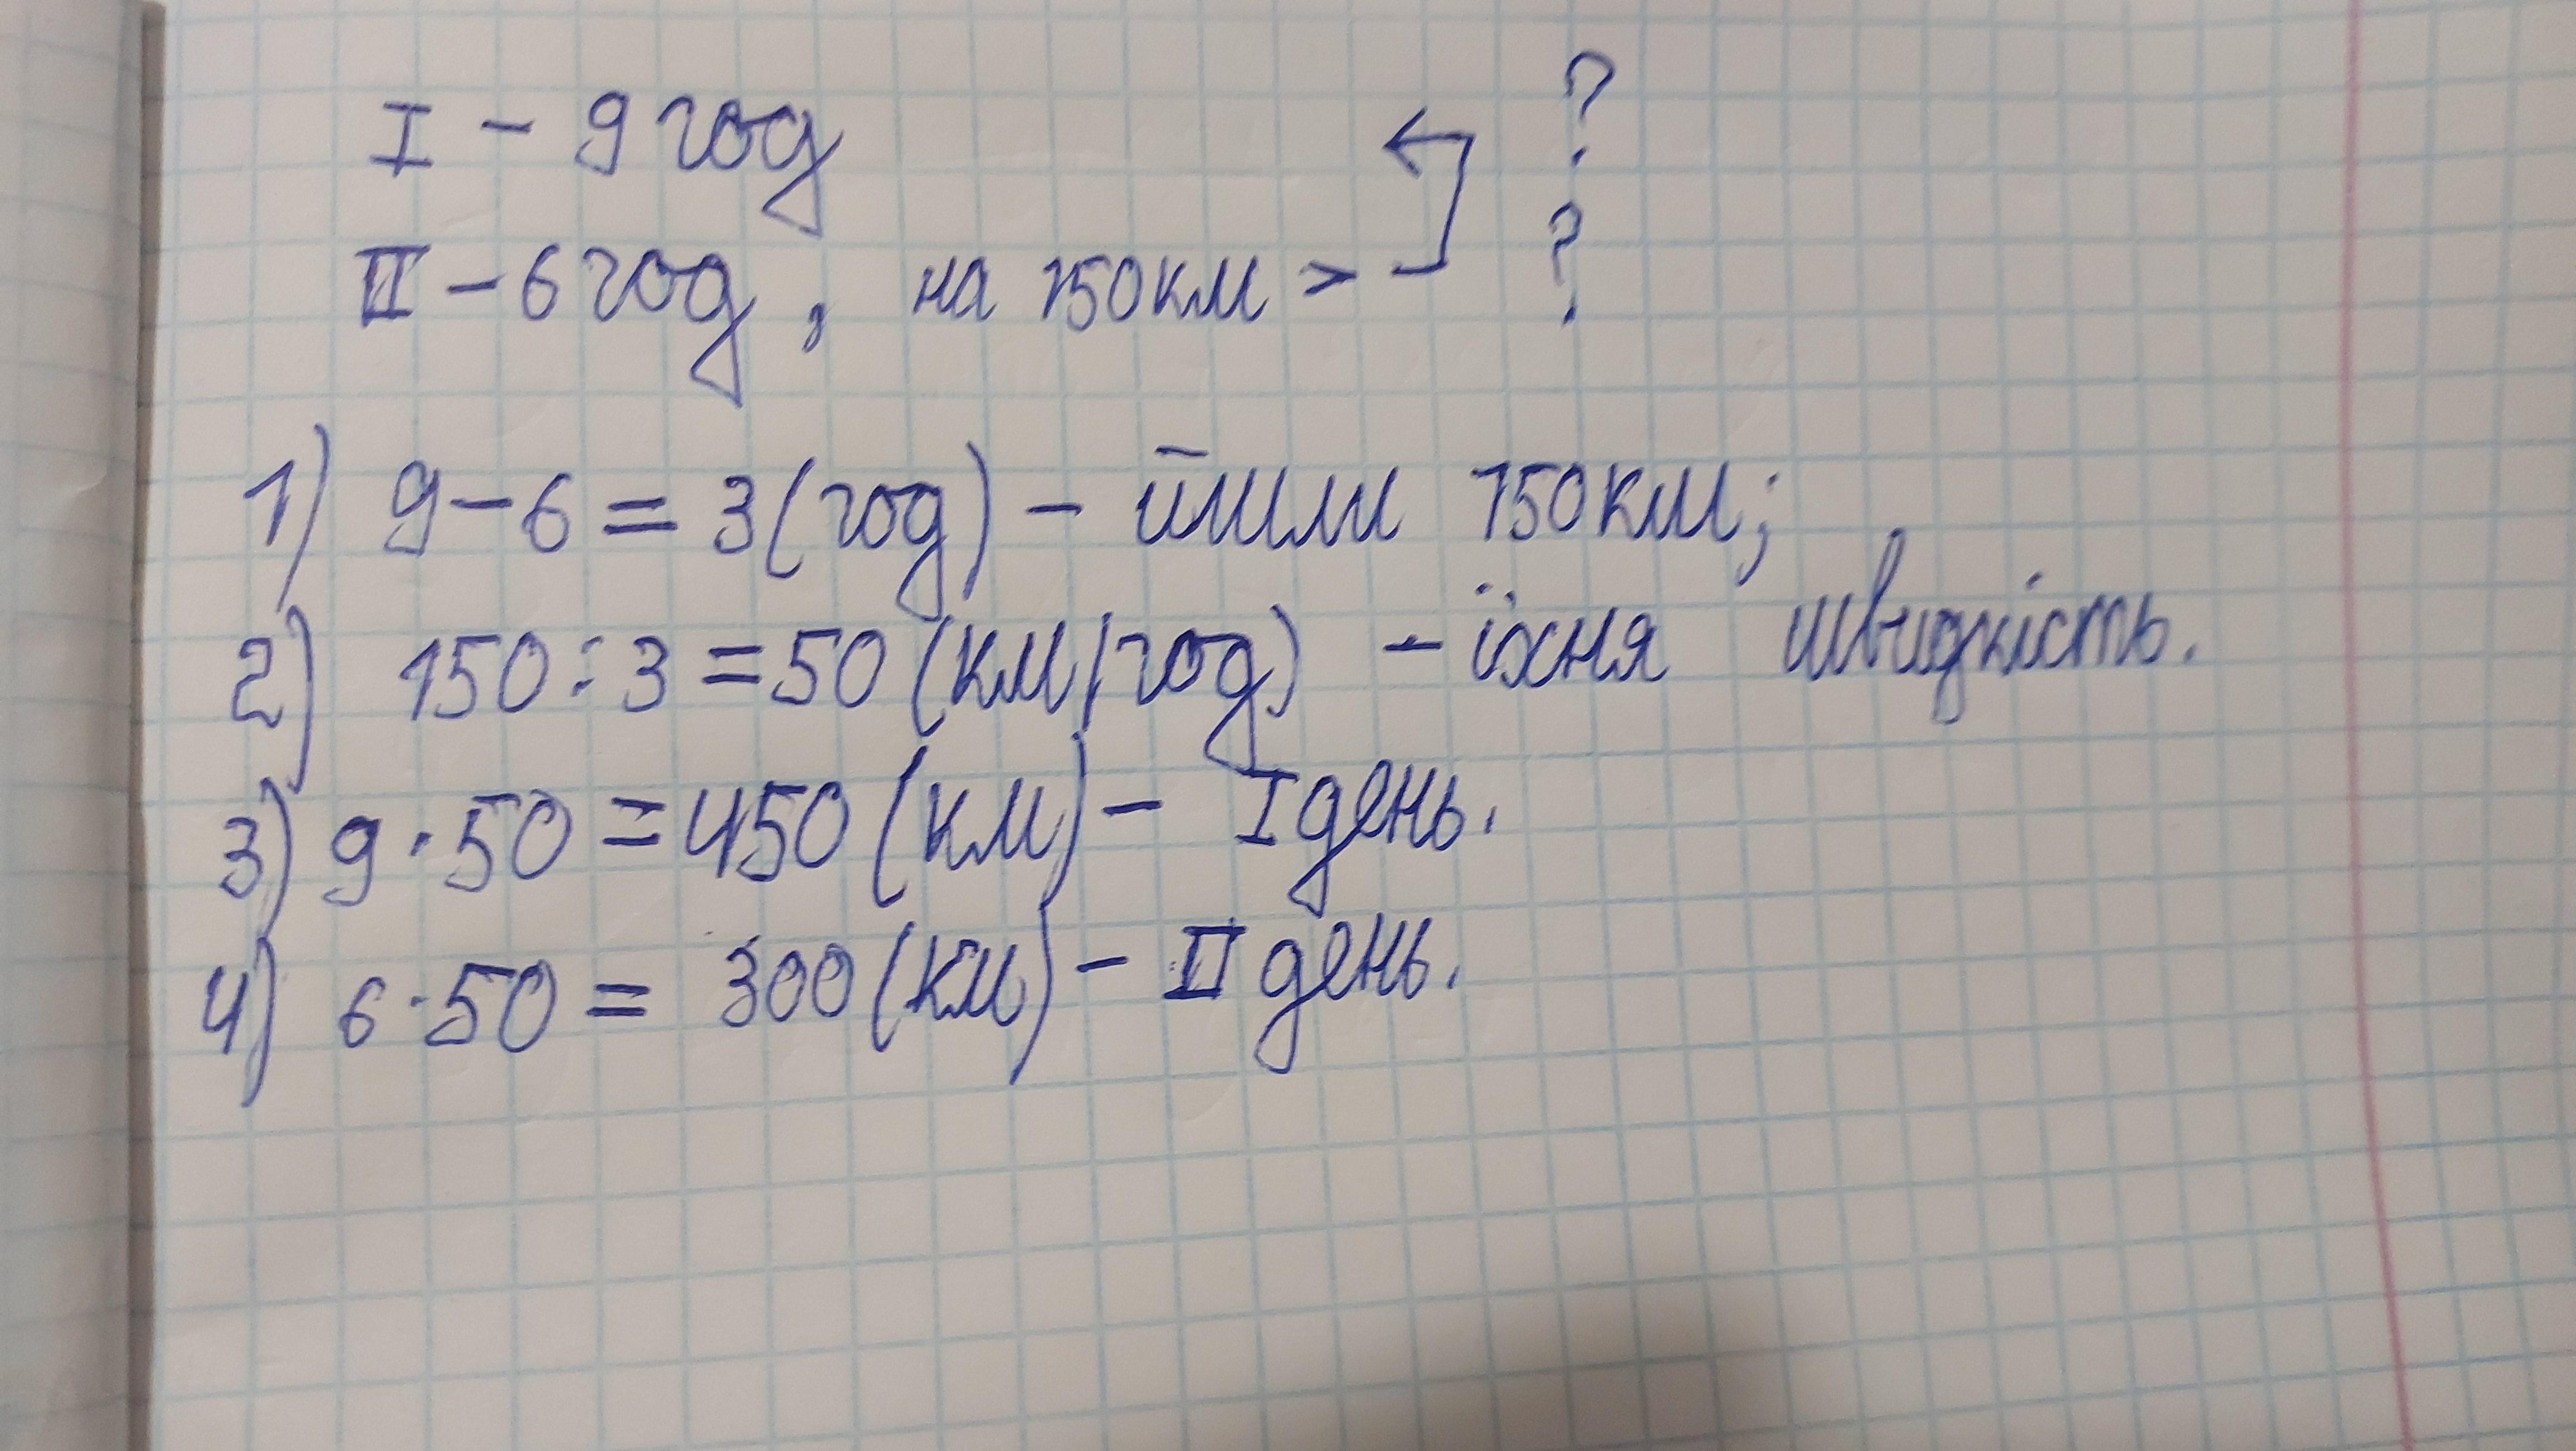 I - 9 год ?
II - 6 год, на 150 км > ?
1) 9 - 6 = 3 (год) - йшли 150 км;
2) 150 : 3 = 50 (км/год) - їхня швидкість.
3) 9 · 50 = 450 (км) - I день.
4) 6 · 50 = 300 (км) - II день.